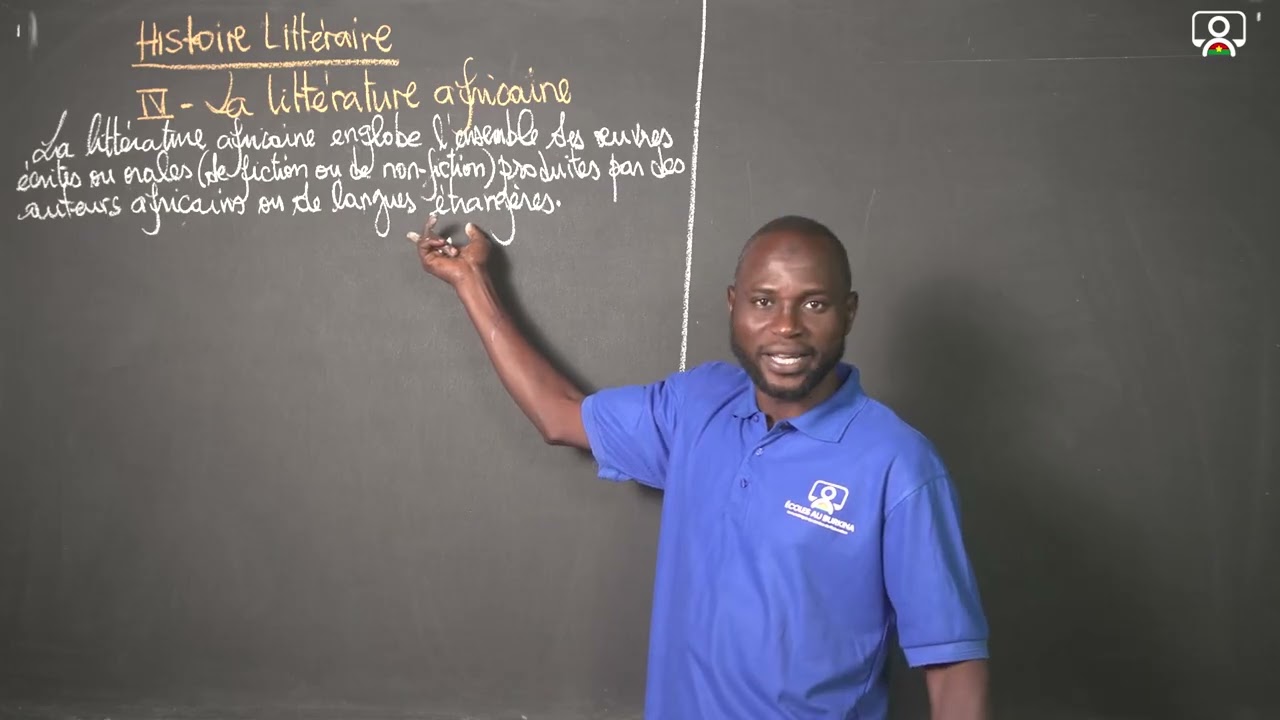 Histoire Littéraire
IV - La littérature africaine
La littérature africaine englobe l'ensemble des œuvres
écrites ou orales (de fiction ou de non-fiction) produites par des
auteurs africains ou de langues étrangères.
ÉCOLES AU BURKINA